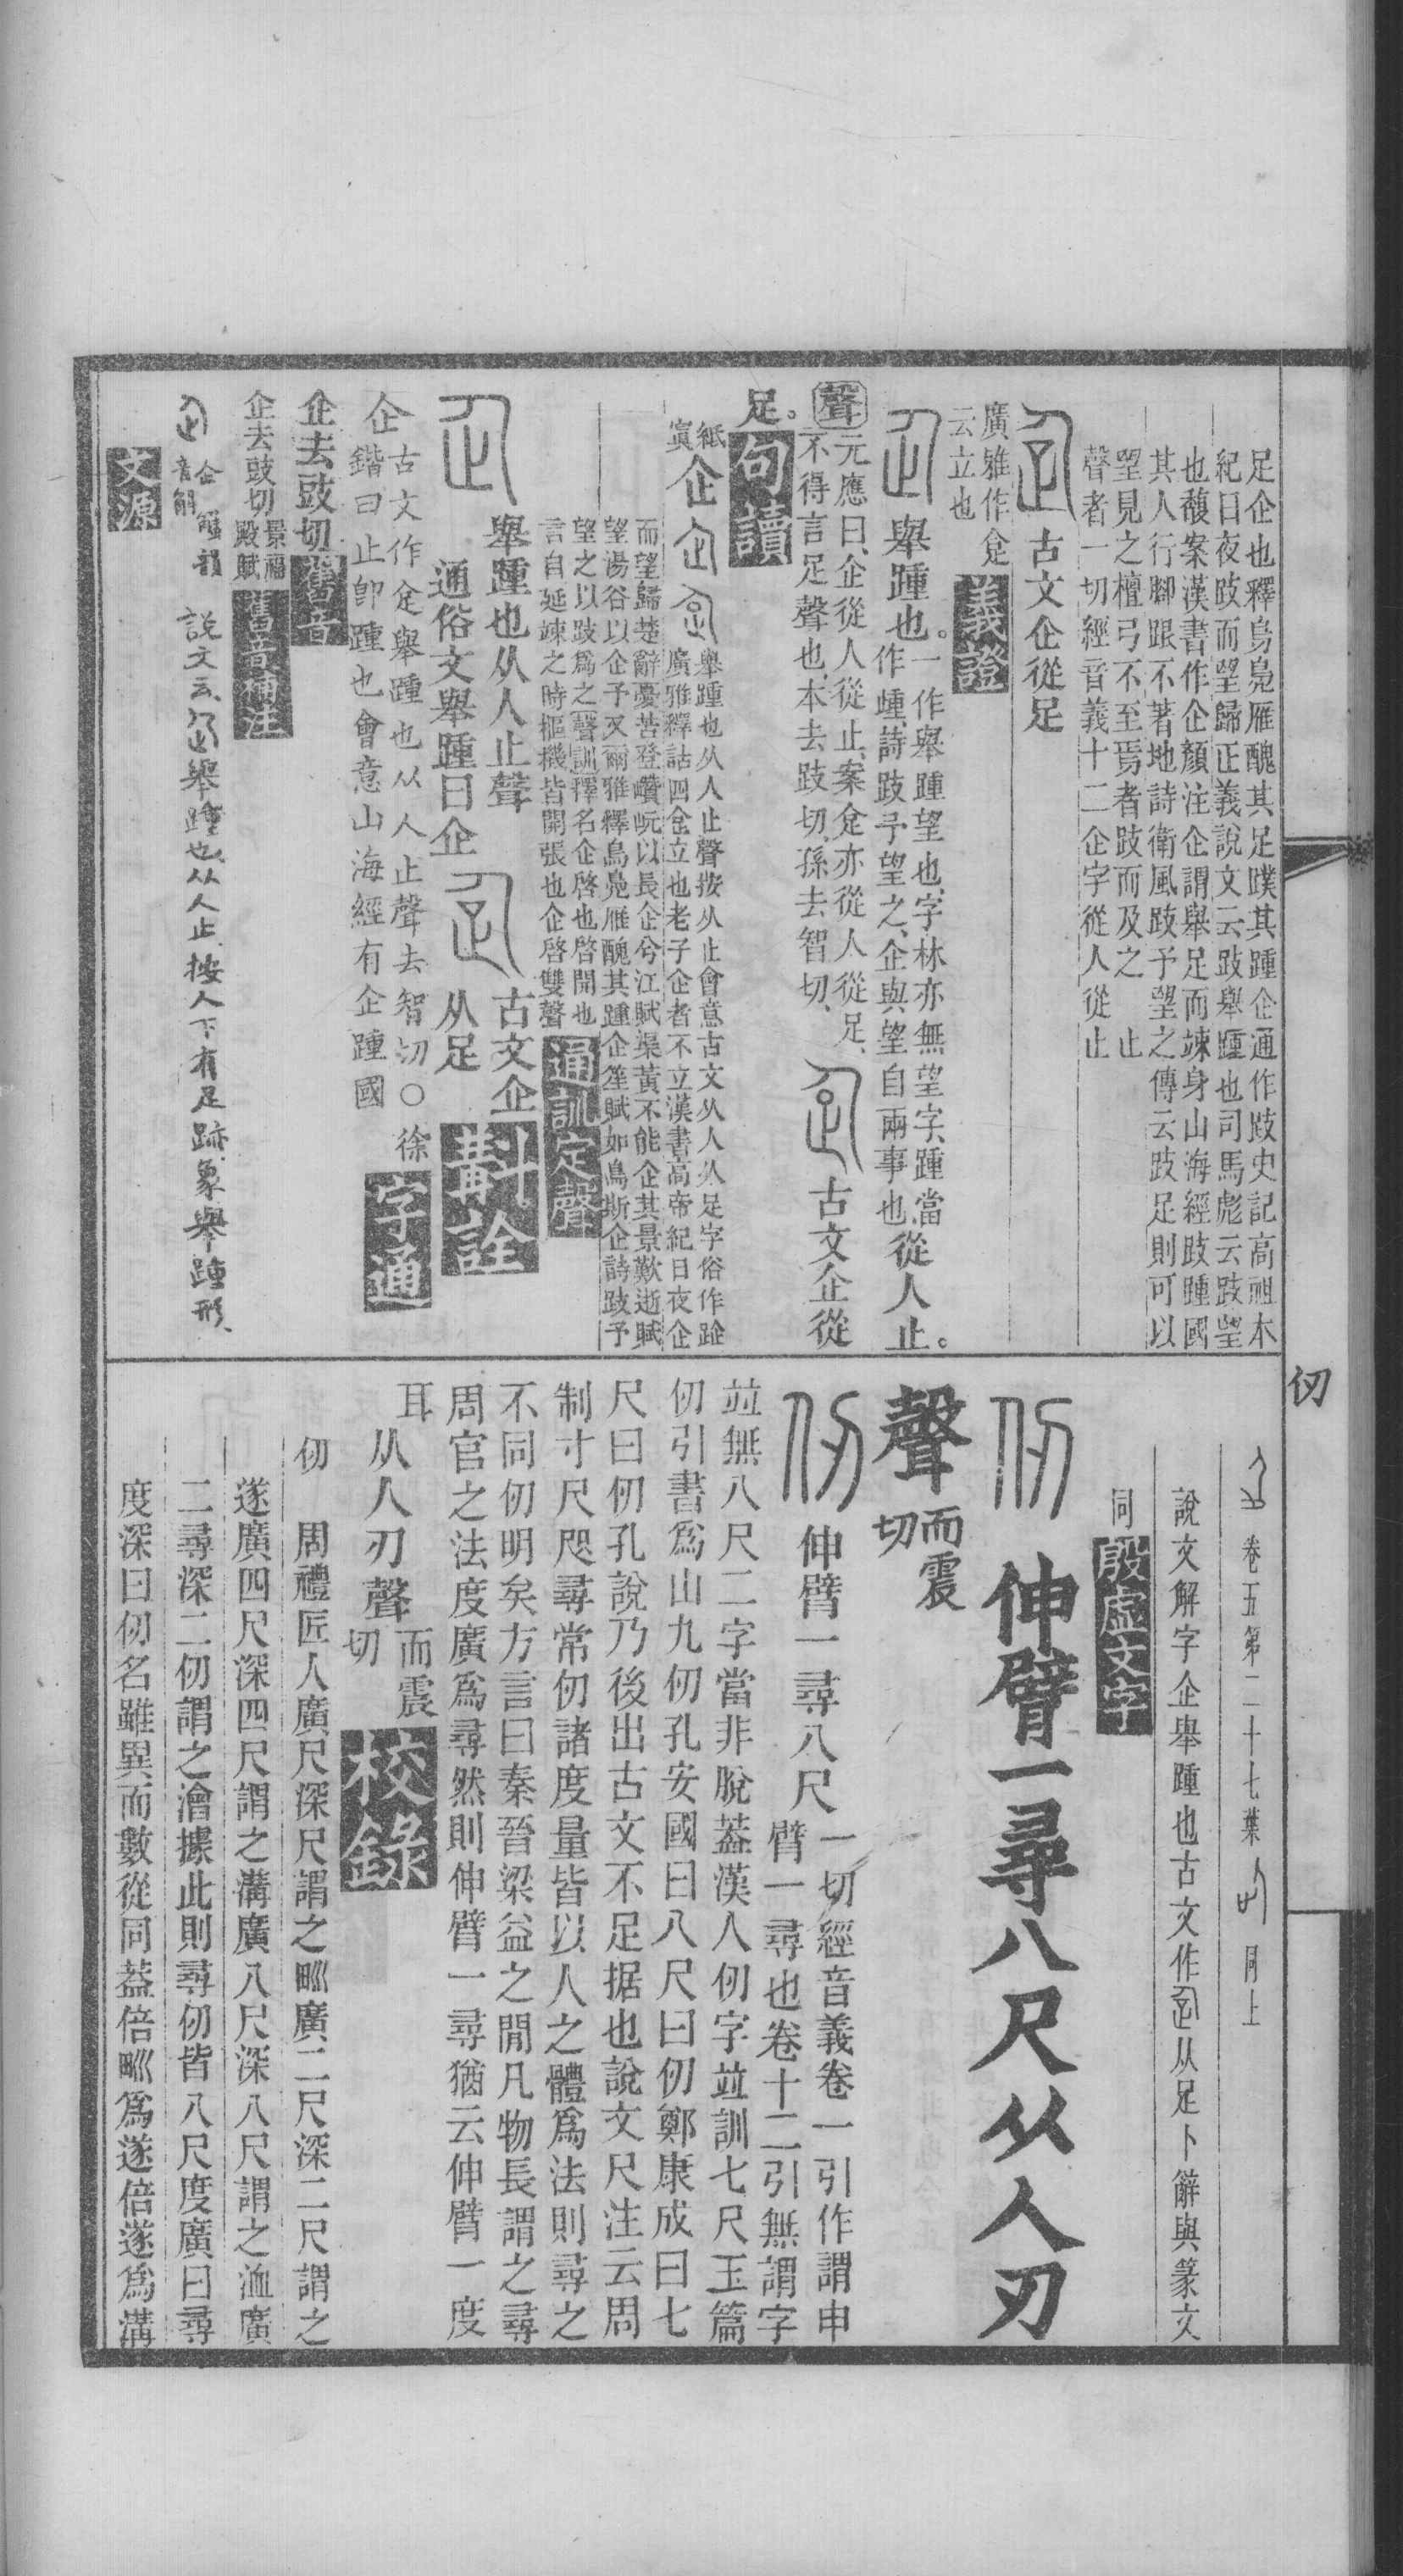 足企也釋鳥鳧雁醜其足蹼其踵企通作跂史記高祖本
紀日夜跂而望歸正義說文云跂舉踵也司馬彪云跂望
也馥案漢書作企顏注企謂舉足而竦身山海經跂踵國
其人行腳跟不著地詩衛風跂予望之傳云跂足則可以
望見之檀弓不至焉者跂而及之 止
聲者一切經音義十二企字從人從止
古文企從足
廣雅作㒰
云立也
義證
舉踵也。
一作舉踵望也、字林亦無望字、踵當
作歱、詩跂予望之、企與望自兩事也、
從人止。
聲
元應曰、企從人從止、案㒰亦從人從足、
不得言足聲也、本去跂切、孫去智切、
古文企從
足。
句讀
紙
寘
企
舉踵也从人止聲按从止會意古文从人从足字俗作跧
廣雅釋詁四㒰立也老子企者不立漢書高帝紀日夜企
而望歸楚辭憂苦登巑岏以長企兮江賦渠黃不能企其景歎逝賦
望湯谷以企予又爾雅釋鳥鳧雁醜其踵企笙賦如鳥斯企詩跂予
望之以跂爲之聲訓釋名企啓也啓開也
言自延竦之時樞機皆開張也企啓雙聲
通訓定聲
舉踵也从人止聲
通俗文舉踵曰企
古文企
从足
斠詮
企
古文作㒰舉踵也从人止聲去智切○徐
鍇曰止卽踵也會意山海經有企踵國
字通
企去跂切
舊音
企去跂切
景福
殿賦
舊音補注
說文云舉踵也、从人止、按人下有足跡、象舉踵形、
文源
仞
卷五第二十七葉
同上
說文解字企舉踵也古文作从足卜辭與篆文
同
殷虛文字
伸臂一尋八尺从人刃
聲
而震
切
伸臂一尋八尺
一切經音義卷一引作謂申
臂一尋也卷十二引無謂字
竝無八尺二字當非脫葢漢人仞字竝訓七尺玉篇
仞引書爲山九仞孔安國曰八尺曰仞鄭康成曰七
尺曰仞孔說乃後出古文不足据也說文尺注云周
制寸尺咫尋常仞諸度量皆以人之體爲法則尋之
不同仞明矣方言曰秦晉梁益之閒凡物長謂之尋
周官之法度廣爲尋然則伸臂一尋猶云伸臂一度
耳
从人刃聲
而震
切
校錄
仞
周禮匠人廣尺深尺謂之甽廣二尺深二尺謂之
遂廣四尺深四尺謂之溝廣八尺深八尺謂之洫廣
二尋深二仞謂之澮據此則尋仞皆八尺度廣曰尋
度深曰仞名雖異而數從同葢倍甽爲遂倍遂爲溝